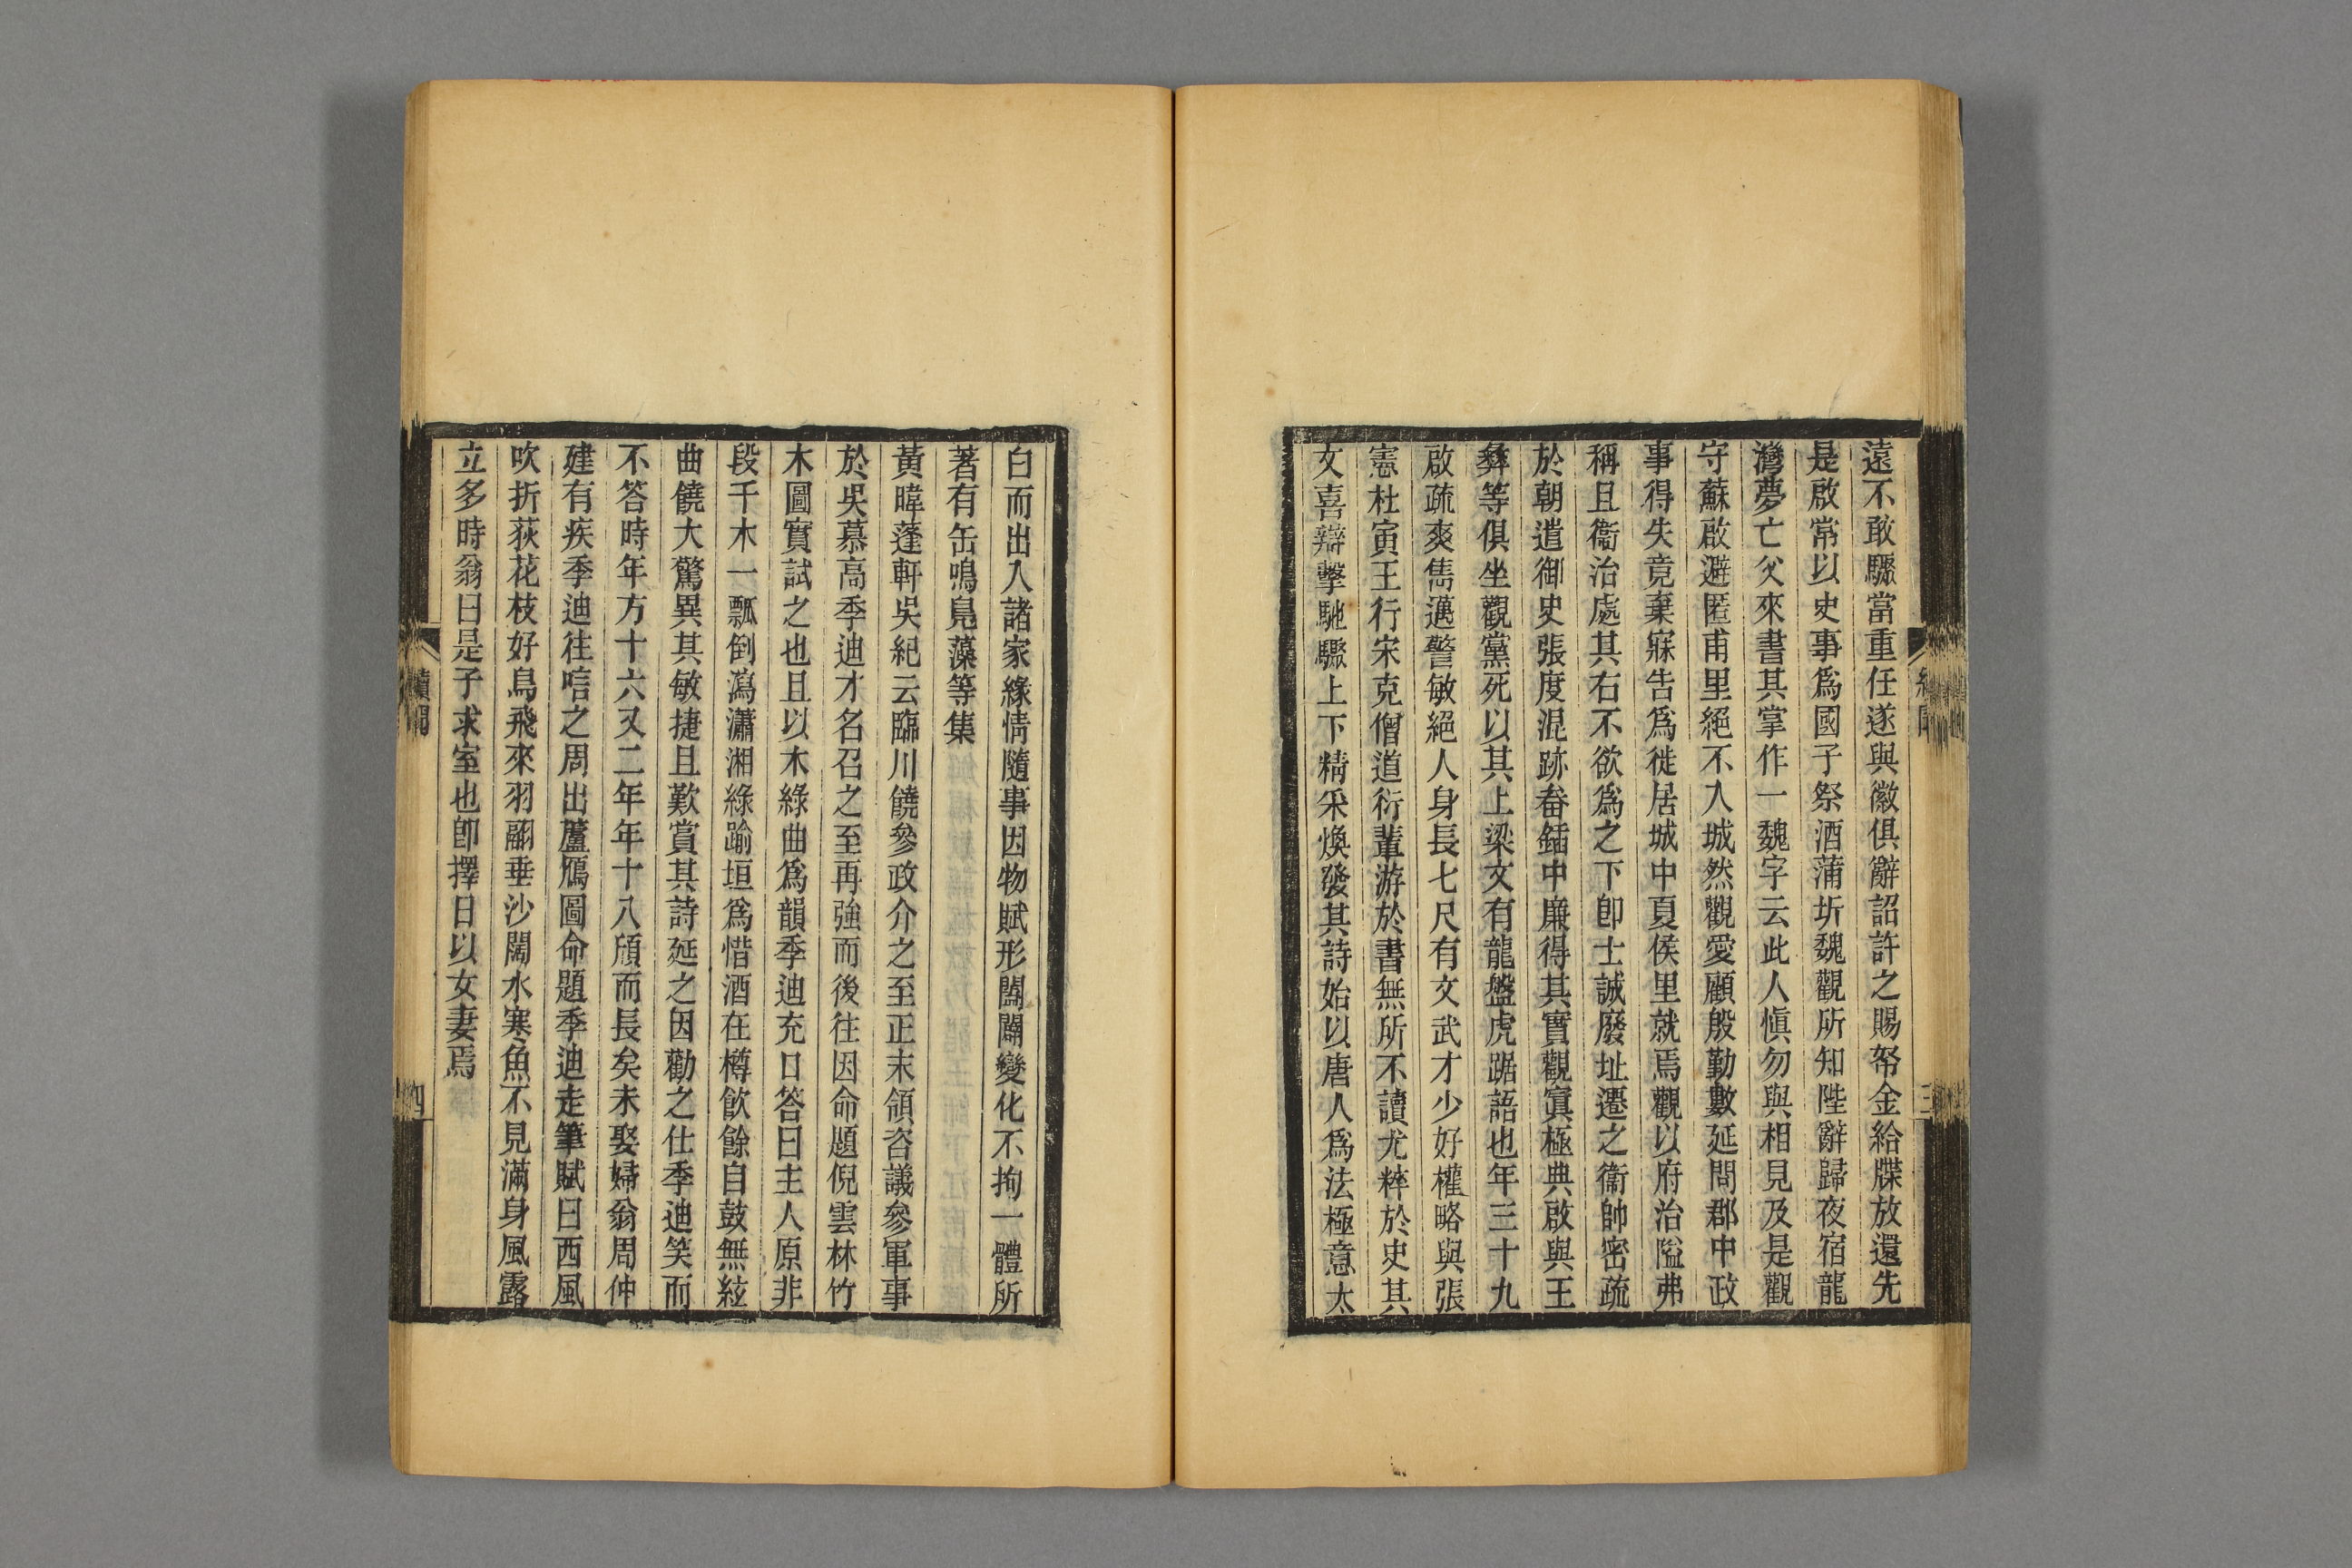 遠不敢驟當重任遂與徽俱辭詔許之賜帑金給牒放還先
是啟常以史事爲國子祭酒蒲圻魏觀所知陛辭歸夜宿龍
灣夢亡父來書其掌作一魏字云此人愼勿與相見及是觀
守蘇啟避匿甫里絕不入城然觀愛顧殷勤數延問郡中政
事得失竟棄寐告爲徙居城中夏侯里就焉觀以府治隘弗
稱且衞治處其右不欲爲之下卽士誠廢址遷之衞帥密疏
於朝遣御史張度混跡畚鍤中廉得其實觀寘極典啟與王
彝等俱坐觀黨死以其上梁文有龍盤虎踞語也年三十九
啟疏爽雋邁警敏絕人身長七尺有文武才少好權略與張
憲杜寅王行宋克僧道衍輩游於書無所不讀尤粹於史其
文喜辯擊馳驟上下精采煥發其詩始以唐人爲法極意太
白而出入諸家緣情隨事因物賦形闔闢變化不拘一體所
著有缶鳴鳧藻等集
黃暐蓬軒吳紀云臨川饒參政介之至正末領咨議參軍事
於吳慕高季迪才名召之至再強而後往因命題倪雲林竹
木圖實試之也且以木綠曲爲韻季迪充口答曰主人原非
段干木一瓢倒瀉瀟湘綠踰垣爲惜酒在樽飮餘自鼓無絃
曲饒大驚異其敏捷且歎賞其詩延之因勸之仕季迪笑而
不答時年方十六又二年年十八頎而長矣未娶婦翁周仲
建有疾季迪往唁之周出蘆鴈圖命題季迪走筆賦曰西風
吹折荻花枝好鳥飛來羽翮垂沙闊水寒魚不見滿身風露
立多時翁曰是子求室也卽擇日以女妻焉